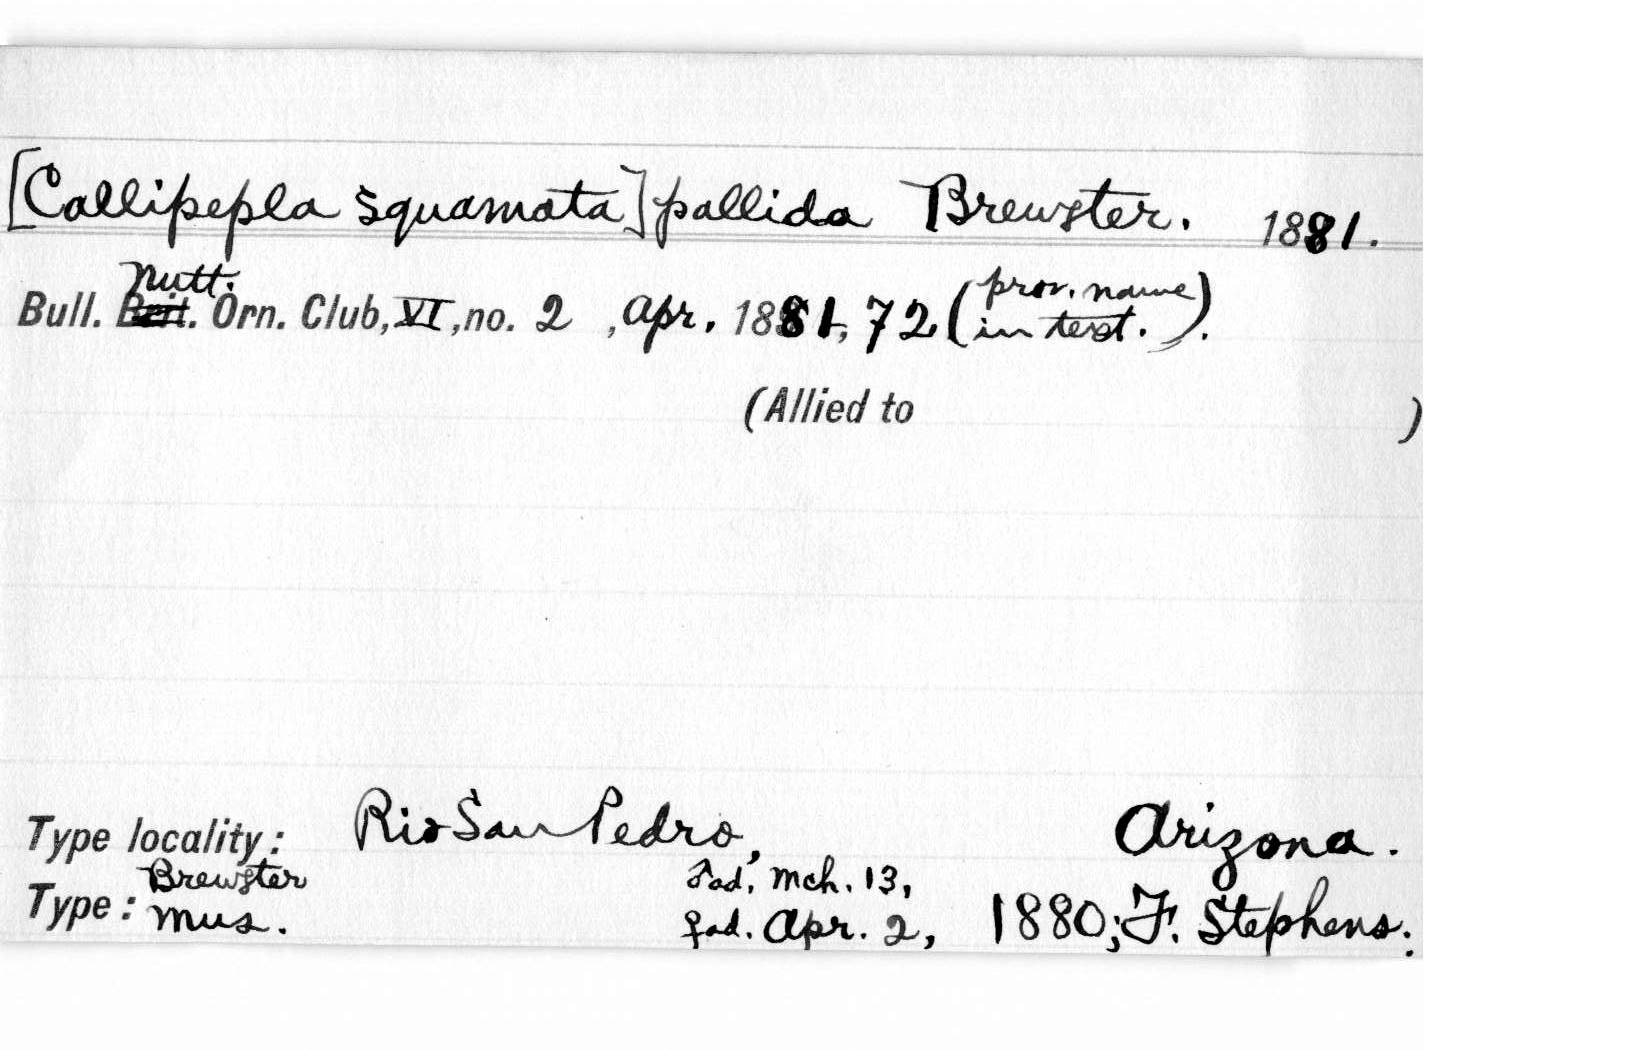 [Callipepla squamata] pallida Brewster. 1881.
Nutt.
Bull. Brit. Orn. Club, VI, no. 2, Apr. 1881, 72 (prov. name in text.).
(Allied to )
Type locality: Rio San Pedro, Arizona.
Type: Brewster Mus. ♂ad. Mch. 13, ♀ad. Apr. 2, 1880; F. Stephens.